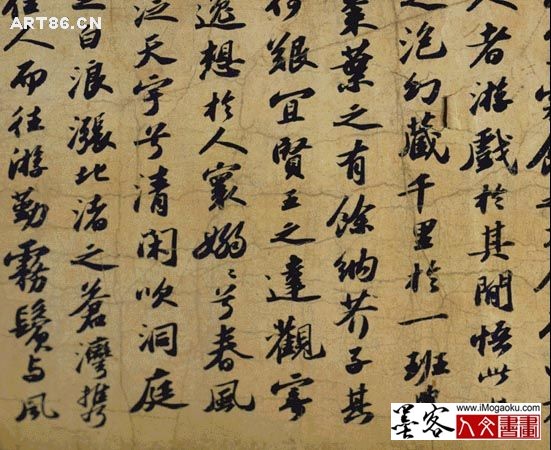 ART86.CN
人者游戲於其間悟此
之泡幻藏千里於一班
葉之有餘納芥子其
何艱宜賢王之達觀寄
逸想於人寰嫋〻兮春風
泛天宇兮清閑吹洞庭
之白浪漲北渚之蒼灣攜
佳人而往游勤霧鬢与風
墨客
www.iMogaoku.com
人文書畫